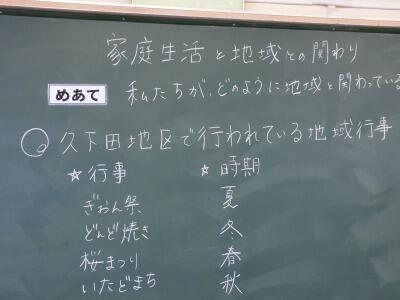 家庭生活と地域との関わり
めあて 私たちが、どのように地域と関わっている
○久下田地区で行われている地域行事
☆行事 ☆時期
ぎおん祭 夏
どんど焼き 冬
桜まつり 春
いたどまち 秋